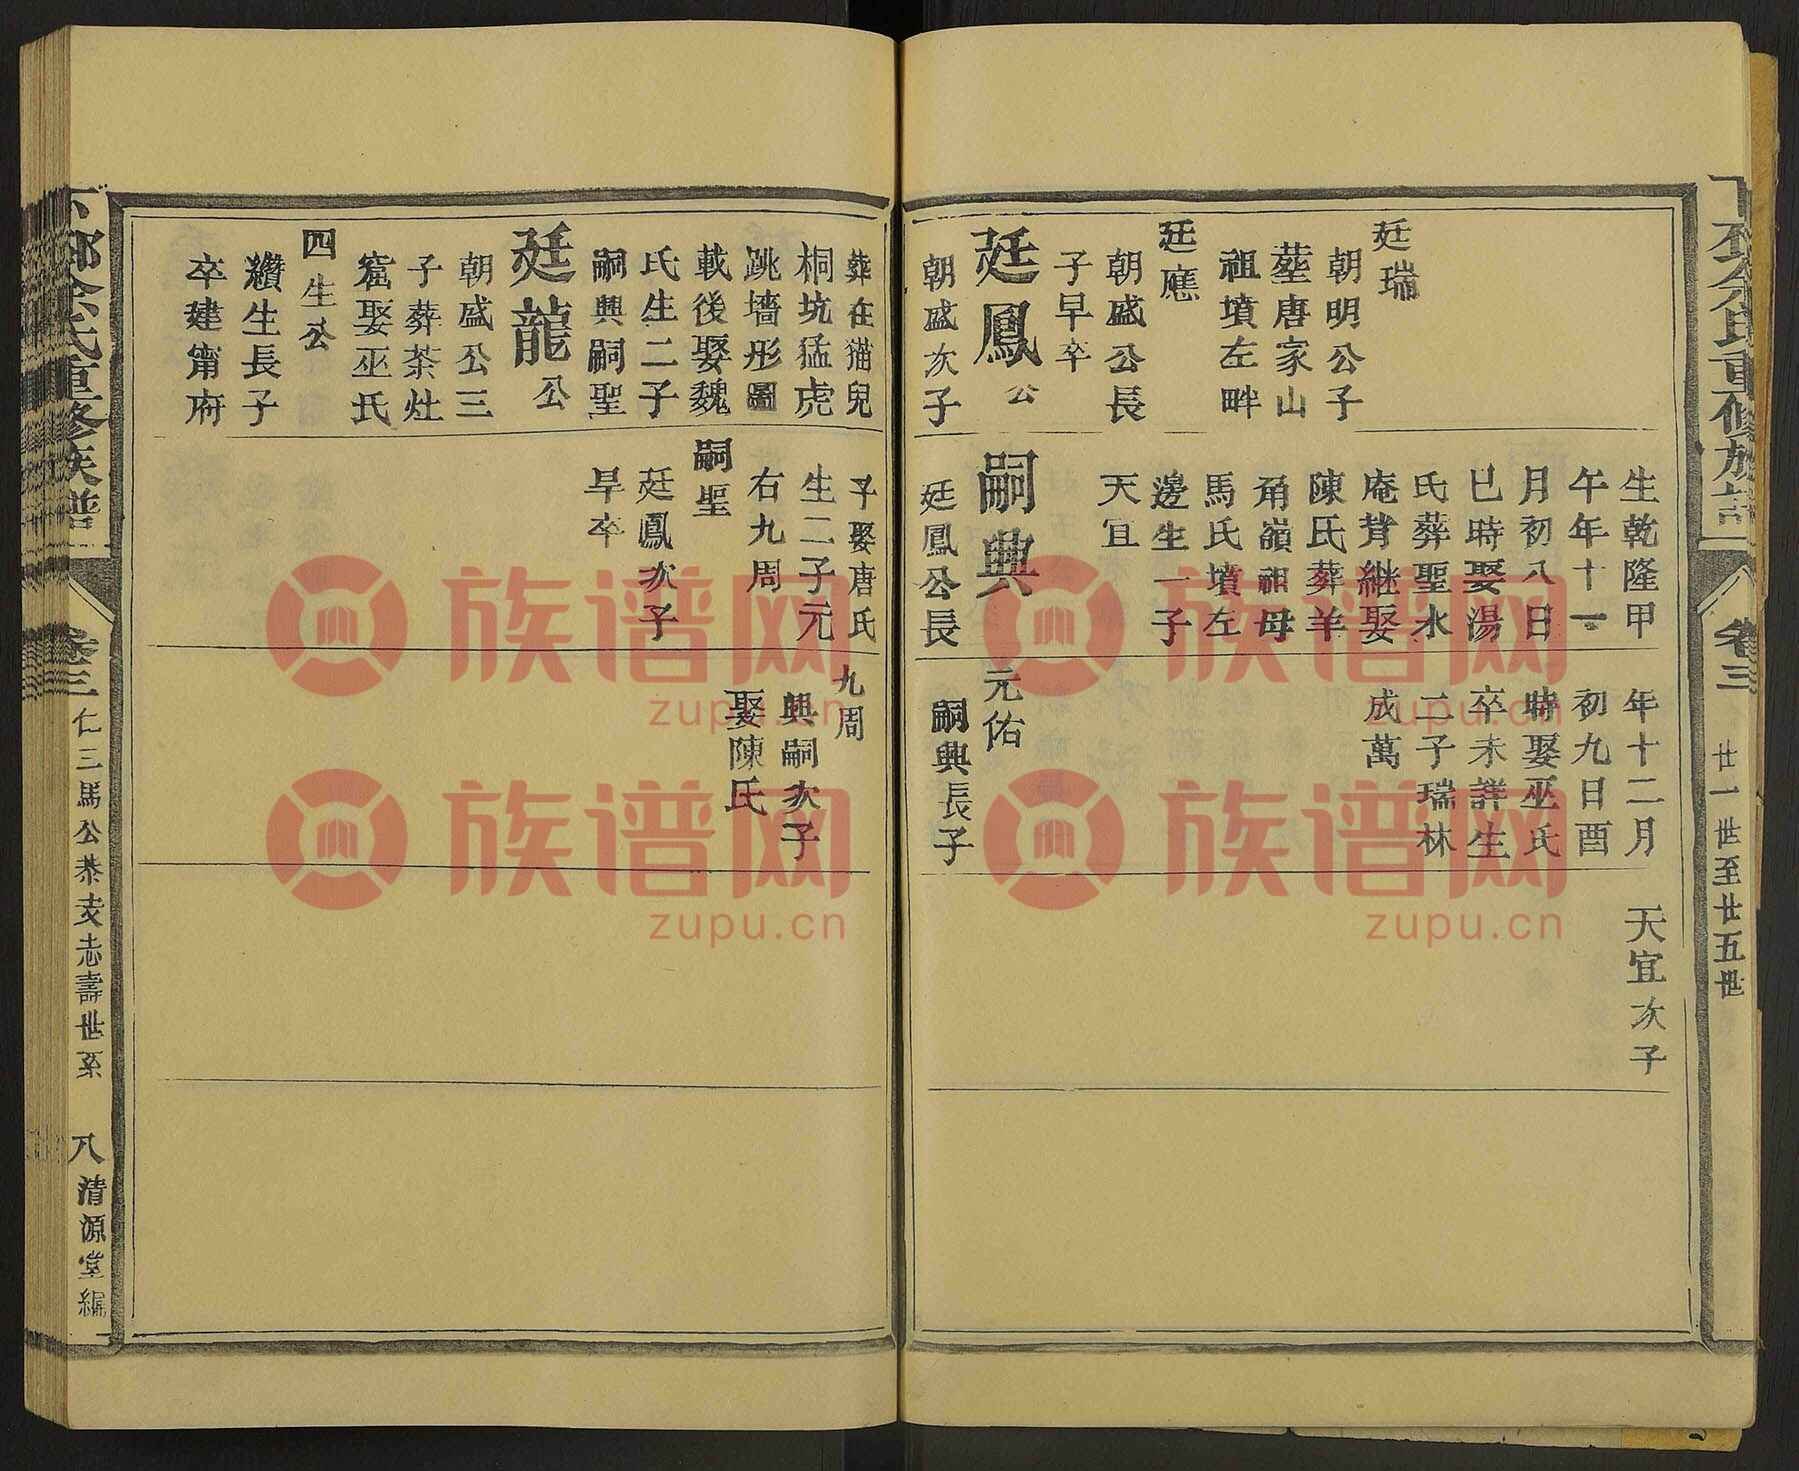 卷三
廿一世至廿五世
廷瑞
朝明公子
塟唐家山
祖墳左畔
廷應
朝盛公長
子早卒
廷鳳公
朝盛次子
生乾隆甲
午年十一
月初八日
巳時娶湯
氏葬聖水
庵背継娶
陳氏葬羊
角嶺祖母
馬氏墳左
邊生一子
天宜
嗣興
廷鳳公長
年十二月
初九日酉
時娶巫氏
卒未詳生
二子瑞林
成萬
元佑
嗣興長子
天宜次子
葬在猫兒
桐坑猛虎
跳墻形圖
載後娶魏
氏生二子
嗣興嗣聖
廷龍公
朝盛公三
子葬茶灶
窠娶巫氏
四生公
纘生長子
卒建甯府
子娶唐氏
生二子元
右九周
嗣聖
廷鳳次子
早卒
九周
興嗣次子
娶陳氏
氏重修族譜
卷三
仁三馬公恭支志壽世系
八
清源堂編
族谱网
zupu.cn
族谱网
zupu.cn
族谱网
zupu.cn
族谱网
zupu.cn